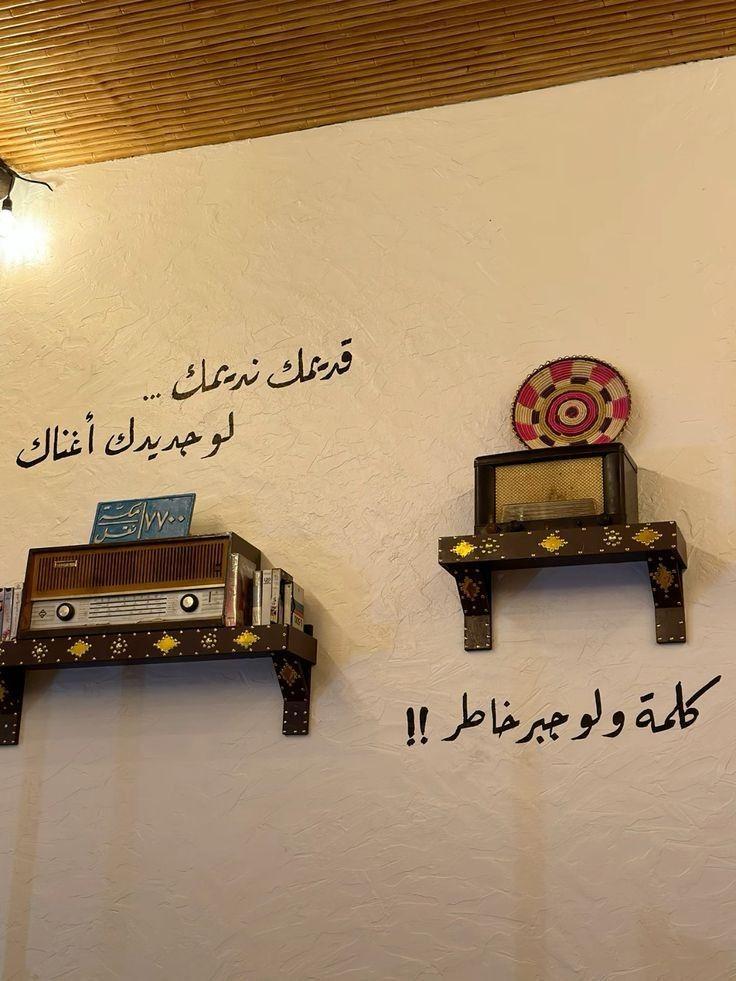 قديمك نديمك ...
لو جديدك أغناك
مكة
نقل
٧٧٠٠
كلمة ولو جبر خاطر !!